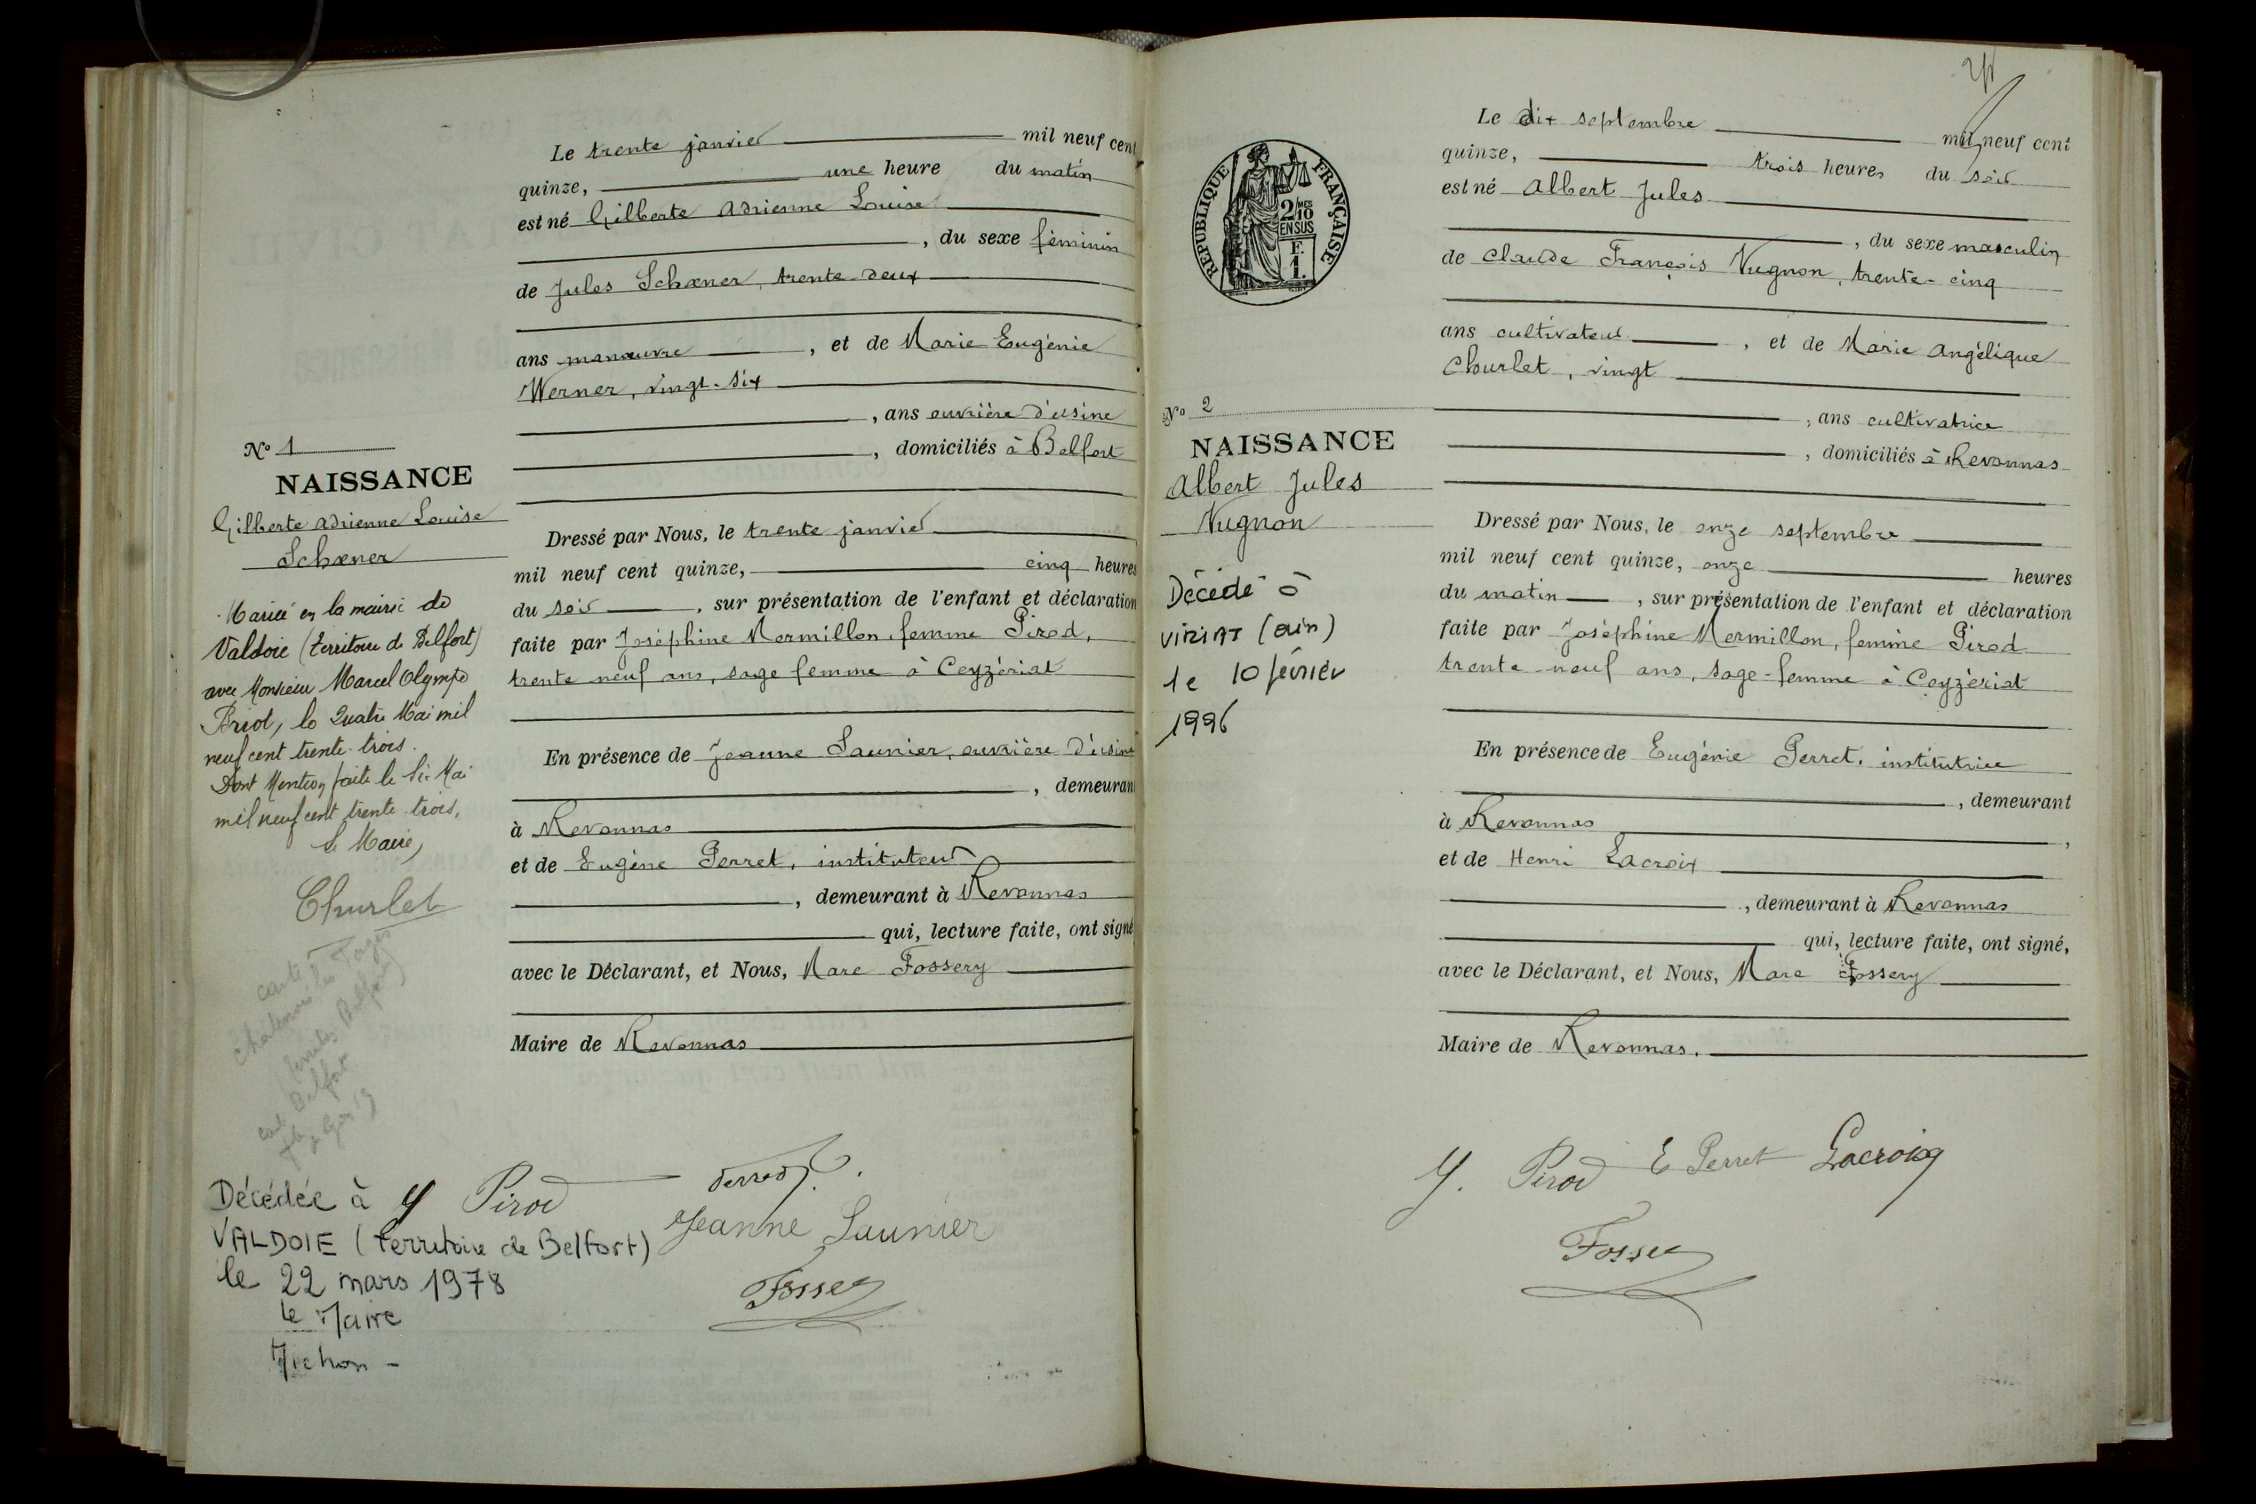 Le trente janvier mil neuf cent
quinze, une heure du matin
est né Gilberte Adrienne Louise
, du sexe féminin
de Jules Schœner, trente-deux
ans manœuvre, et de Marie Eugénie
Werner, vingt-six
, ans ouvrière d'usine
, domiciliés à Belfort
Dressé par Nous, le trente janvier
mil neuf cent quinze, cinq heures
du soir, sur présentation de l'enfant et déclaration
faite par Joséphine Mermillon, femme Pirod,
trente neuf ans, sage femme à Ceyzériat
En présence de Jeanne Saunier, ouvrière d'usine
, demeurant
à Revonnas
et de Eugène Perret, instituteur
, demeurant à Revonnas
qui, lecture faite, ont signé
avec le Déclarant, et Nous, Marc Fossery
Maire de Revonnas
N° 1
NAISSANCE
Gilberte Adrienne Louise
Schœner
Mariée en la mairie de
Valdoie (territoire de Belfort)
avec Monsieur Marcel Olympe
Briot, le Quatre Mai mil
neuf cent trente-trois.
Dont Mention faite le Six Mai
mil neuf cent trente trois,
Le Maire,
Churlet
carte
Belfort
J Pirod Perret
Jeanne Saunier
Fossey
Décédée à
VALDOIE (Territoire de Belfort)
le 22 mars 1978
Le Maire
Michon -
REPUBLIQUE FRANÇAISE
2/10 MES
EN SUS
F.
1.
Le dix septembre mil neuf cent
quinze, trois heures du soir
est né Albert Jules
, du sexe masculin
de Claude François Vugnon, trente-cinq
ans cultivateur, et de Marie Angélique
Churlet, vingt
, ans cultivatrice
, domiciliés à Revonnas
Dressé par Nous, le onze septembre
mil neuf cent quinze, onze heures
du matin, sur présentation de l'enfant et déclaration
faite par Joséphine Mermillon, femme Pirod
trente-neuf ans, sage-femme à Ceyzériat
En présence de Eugénie Perret, institutrice
, demeurant
à Revonnas,
et de Henri Lacroix
, demeurant à Revonnas
qui, lecture faite, ont signé,
avec le Déclarant, et Nous, Marc Fossery
Maire de Revonnas.
N° 2
NAISSANCE
Albert Jules
Vugnon
Décédé à
VIRIAT (Ain)
le 10 février
1996
J. Pirod E Perret Lacroix
Fossey